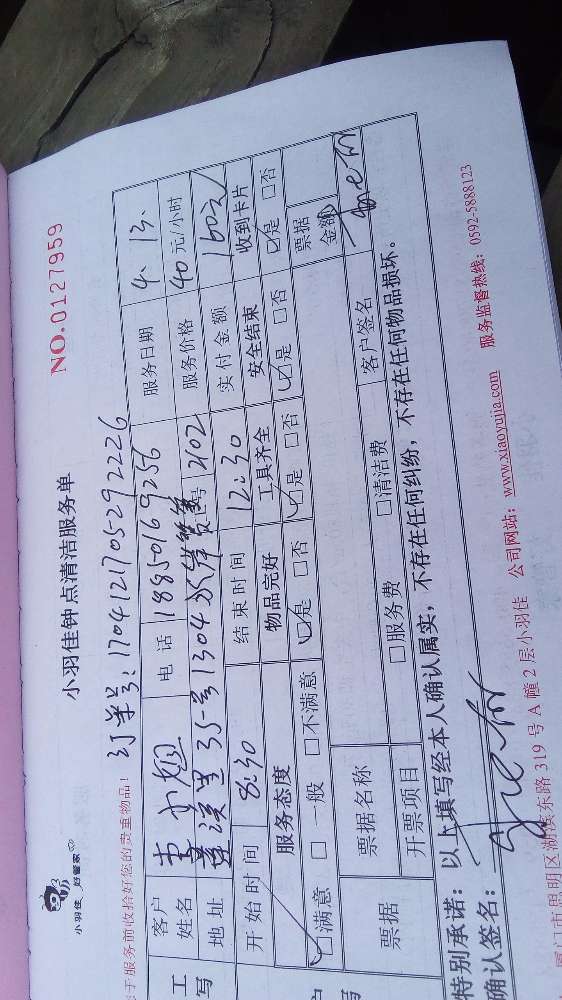 小羽佳 好管家
小羽佳钟点清洁服务单
NO.0127959
于服务前收拾好您的贵重物品!
订单号:17041217052922226
客户姓名 李小姐 电话 18850169256 服务日期 4.13.
地址 35-号1304 2102 服务价格 40元/小时
开始时间 8:30 结束时间 12:30 实付金额 160元
服务态度 物品完好 工具齐全 安全结束 收到卡片
☑满意 □一般 □不满意 ☑是 □否 ☑是 □否 ☑是 □否 ☑是 □否
票据 票据名称 票据金额
开票项目 □服务费 □清洁费 客户签名
特别承诺:以上填写经本人确认属实,不存在任何纠纷,不存在任何物品损坏。
确认签名:
厦门市思明区湖滨东路319号A幢2层小羽佳 公司网站:www.xiaoyujia.com 服务监督热线:0592-5888123
工
写
户
写